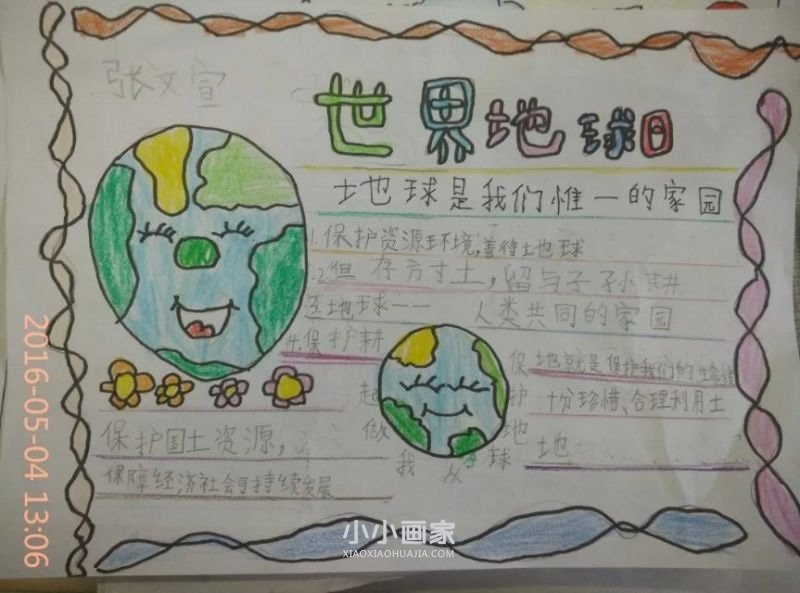 张文宣
世界地球日
土地球是我们惟一的家园
1.保护资源环境,善待土也球
2.但存方寸土,留与子孙耕
3.地球一一 人类共同的家园
4.保护耕
地就是保护我们的生命线
十分珍惜、合理利用土
地
保护地球
我
做
起
保护国土资源,
保障经济社会可持续发展
2016-05-04 13:06
小小画家
XIAOXIAOHUAJIA.COM